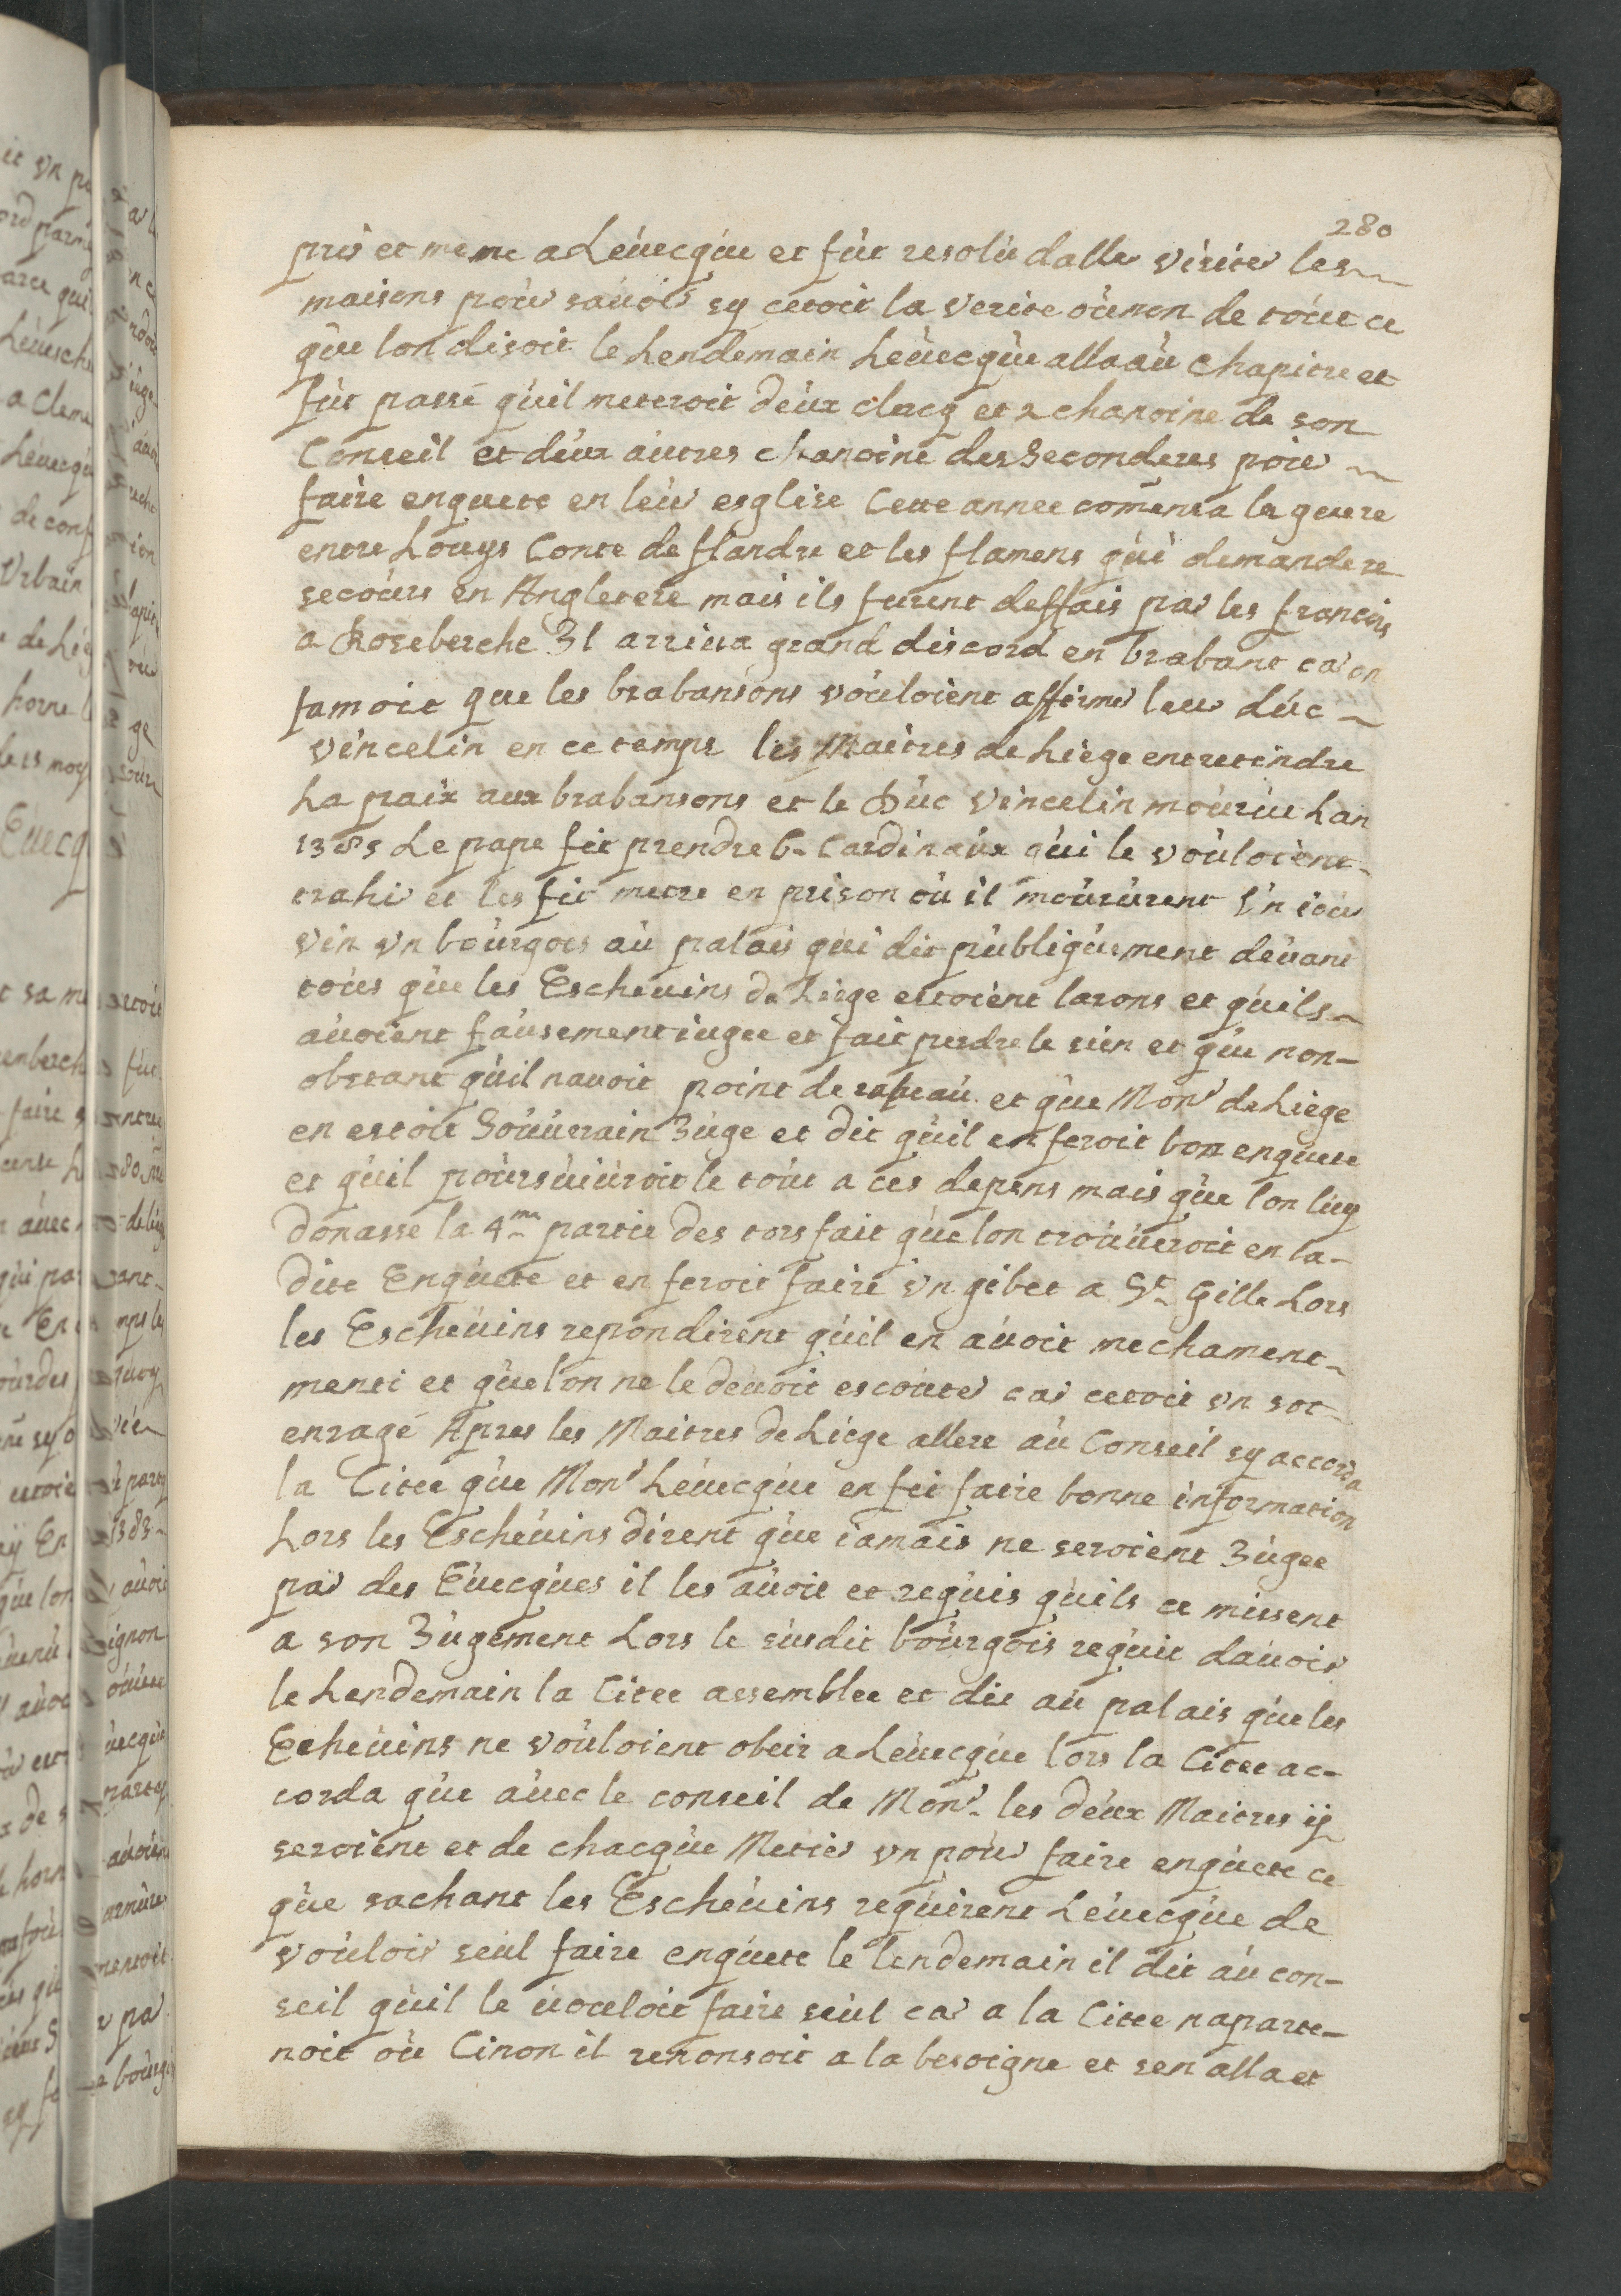 280
pris et meme a Léuecque et fut resolu daller visiter les
maisons pour sauoir sy cetoit la verite ou non de tout ce
que lon disoit le Lendemain Léuecque alla au Chapitre et
fut passé quil meteroit deux clercq et 2 chanoine de son
Conseil et deux autres chanoine des Seconderes pour
faire enquete en leur esglise Cette annee comenca la geure
entre Louys Conte de flandre et les flamens qui demandere
secours en Angletere mais ils furent deffais par les francois
a Roseberche Il arriua grand discord en brabant car on
famoit que les brabansons vouloient affirmer leur duc
vincelin en ce temps les Maitres de Liege entretindre
La paix aux brabansons et le Duc Vincelin mourut Lan
1385 Le pape fit prendre 6 Cardinaux qui le vouloient
trahir et les fit metre en prison ou il moururent Un iour
vin vn bourgois au palais qui dit publiquement deuant
tous que les Escheuins de Liege estoient larons et quils
auoient fausement iugee et fait perdre le sien et que non-
obstant quil nauoit point de et que Monr de Liege
en estoit Souuerain Juge et dit quil en feroit bon enquete
et quil poursuiuroit le tout a ces depens mais que lon luy
donasse la 4me partie des tors fait que lon trouueroit en la-
dite Enquete et en feroit faire vn gibet a St Gille Lors
les Escheuins repondirent quil en auoit mechament
menti et que lon ne le deuoit escouter car cetoit vn sot
enragé Apres les Maitres de Liege allere au Conseil sy accorda
la Citee que Monr Léuecque en fit faire bonne information
Lors les Escheuins dirent que iamais ne seroient Jugee
par des Euecques il les auoit et requis quils ce missent
a son Jugement Lors le susdit bourgois requit dauoir
le Lendemain la Citee assemblee et dit au palais que les
Echeuins ne vouloient obeir a Léuecque lors la Citee ac-
corda que auec le conseil de Monr les deux Maitres ij
seroient et de chacque Metier vn pour faire enquete ce
que sachant les Escheuins requirent Léuecque de
vouloir seul faire enquete le lendemain il dit au con-
seil quil le uoeloit faire seul car a la Citee naparte-
noit ou Cinon il renonsoit a la besoigne et sen alla et